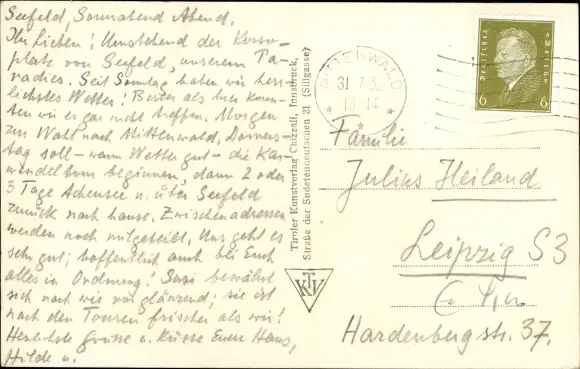 Seefeld, Sonnabend Abend.
Ihr Lieben! Umstehend der Korso-
platz von Seefeld, unserem Pa-
radies. Seit Sonntag haben wir herr-
lichstes Wetter! Besser als hier konn-
ten wir es gar nicht treffen. Morgen
zur Wahl nach Mittenwald, Donners-
tag soll - wann Wetter gut - die Kar-
wendeltour beginnen, dann 2 oder
3 Tage Achensee u. über Seefeld
zurück nach hause. Zwischenadressen
werden noch mitgeteilt. Uns geht es
sehr gut; hoffentlich auch bei Euch
alles in Ordnung! Susi bewährt
sich nach wie vor glänzend; sie ist
nach den Touren frischer als wir!
Herzlichste Grüsse u. Küsse Euer Hans,
Hilde u.
Tiroler Kunstverlag Chizzali, Innsbruck,
Straße der Sudetendeutschen 21 (Sillgasse)
KTV
MITTENWALD
31.7.32
13-14
DEUTSCHES REICH
6 6
Familie
Julius Heiland
Leipzig S3
Hardenbergstr. 37.